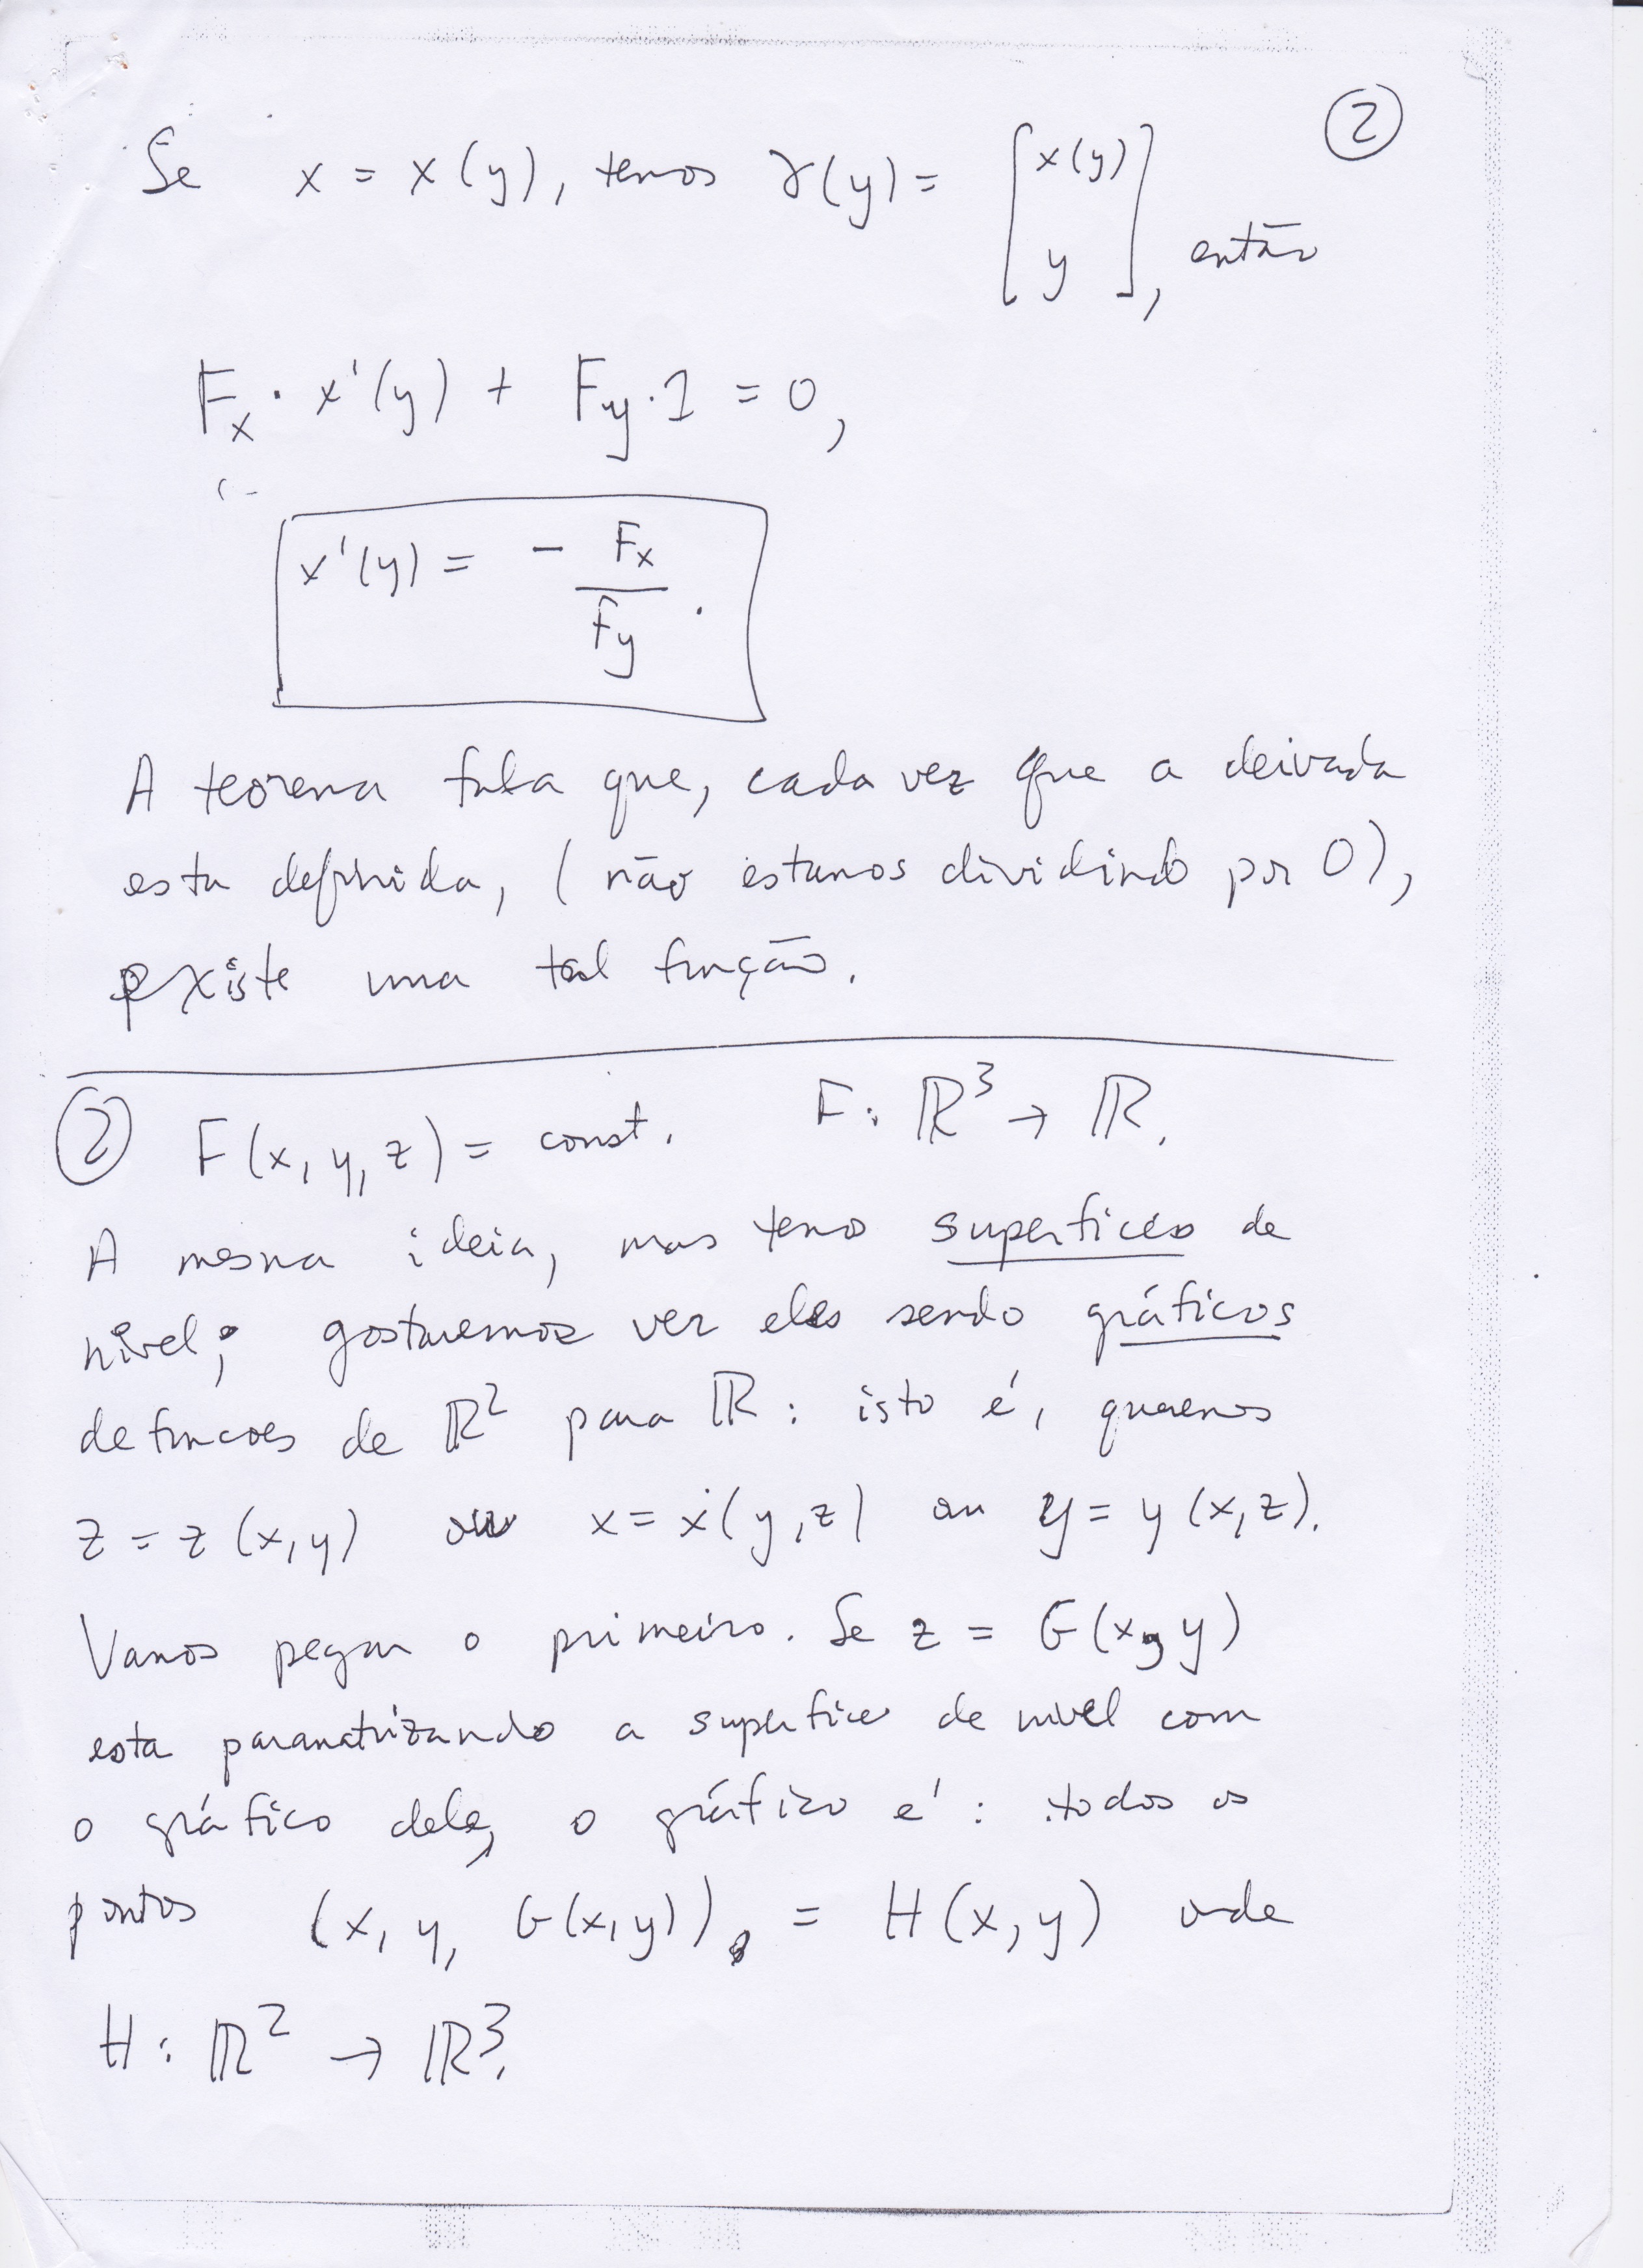 ②
Se x = x(y), temos γ(y) = [x(y) y], então
F_x · x'(y) + F_y · 1 = 0,
x'(y) = - F_x / F_y .
A teorema fala que, cada vez que a deivada
esta definida, (não estamos dividindo por 0),
existe uma tal função.
② F(x, y, z) = const. F: ℝ³ → ℝ.
A mesma ideia, mas temo superficies de
nivel; gostaremos ver eles sendo gráficos
de funcoes de ℝ² para ℝ: isto é, queremos
z = z(x, y) ou x = x(y, z) ou y = y(x, z).
Vamos pegar o primeiro. Se z = G(x, y)
esta parametrizando a superficie de nivel com
o gráfico dele, o gráfico é: todos os
pontos (x, y, G(x, y)) = H(x, y) onde
H: ℝ² → ℝ³.